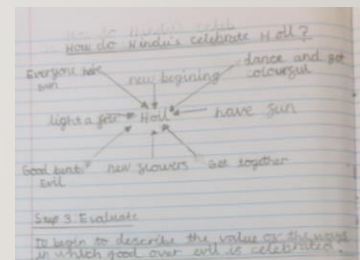 How do Hindu's celebrate Holi?
Everyone have
fun
new begining
dance and get
colourful
light a fire
Holi
have fun
Good beats
Evil
new flowers
Get together
Step 3: Evaluate
To begin to describe the value of the ways
in which good over evil is celebrated.